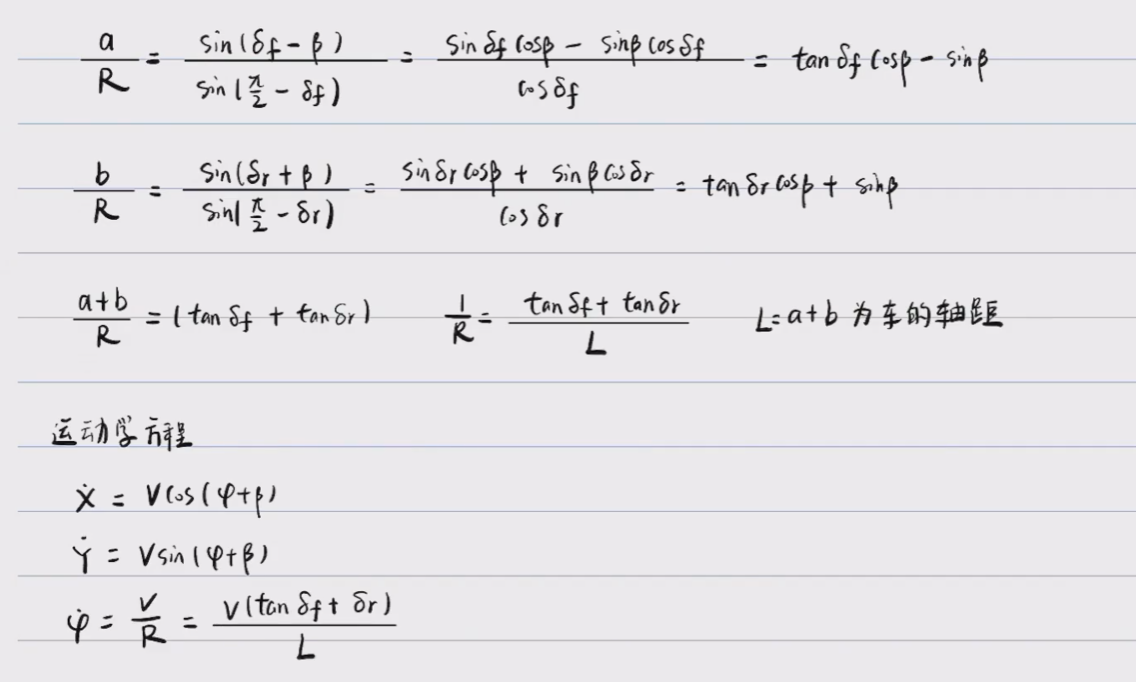 a/R = sin(δf - β)/sin(π/2 - δf) = (sin δf cosβ - sinβ cos δf)/cos δf = tan δf cosβ - sinβ
b/R = sin(δr + β)/sin(π/2 - δr) = (sin δr cosβ + sin β cos δr)/cos δr = tan δr cosβ + sinβ
(a+b)/R = (tan δf + tan δr) 1/R = (tan δf + tan δr)/L L = a+b 为车的轴距
运动学方程
Ẋ = Vcos(φ+β)
Ẏ = Vsin(φ+β)
φ̇ = V/R = V(tan δf + δr)/L